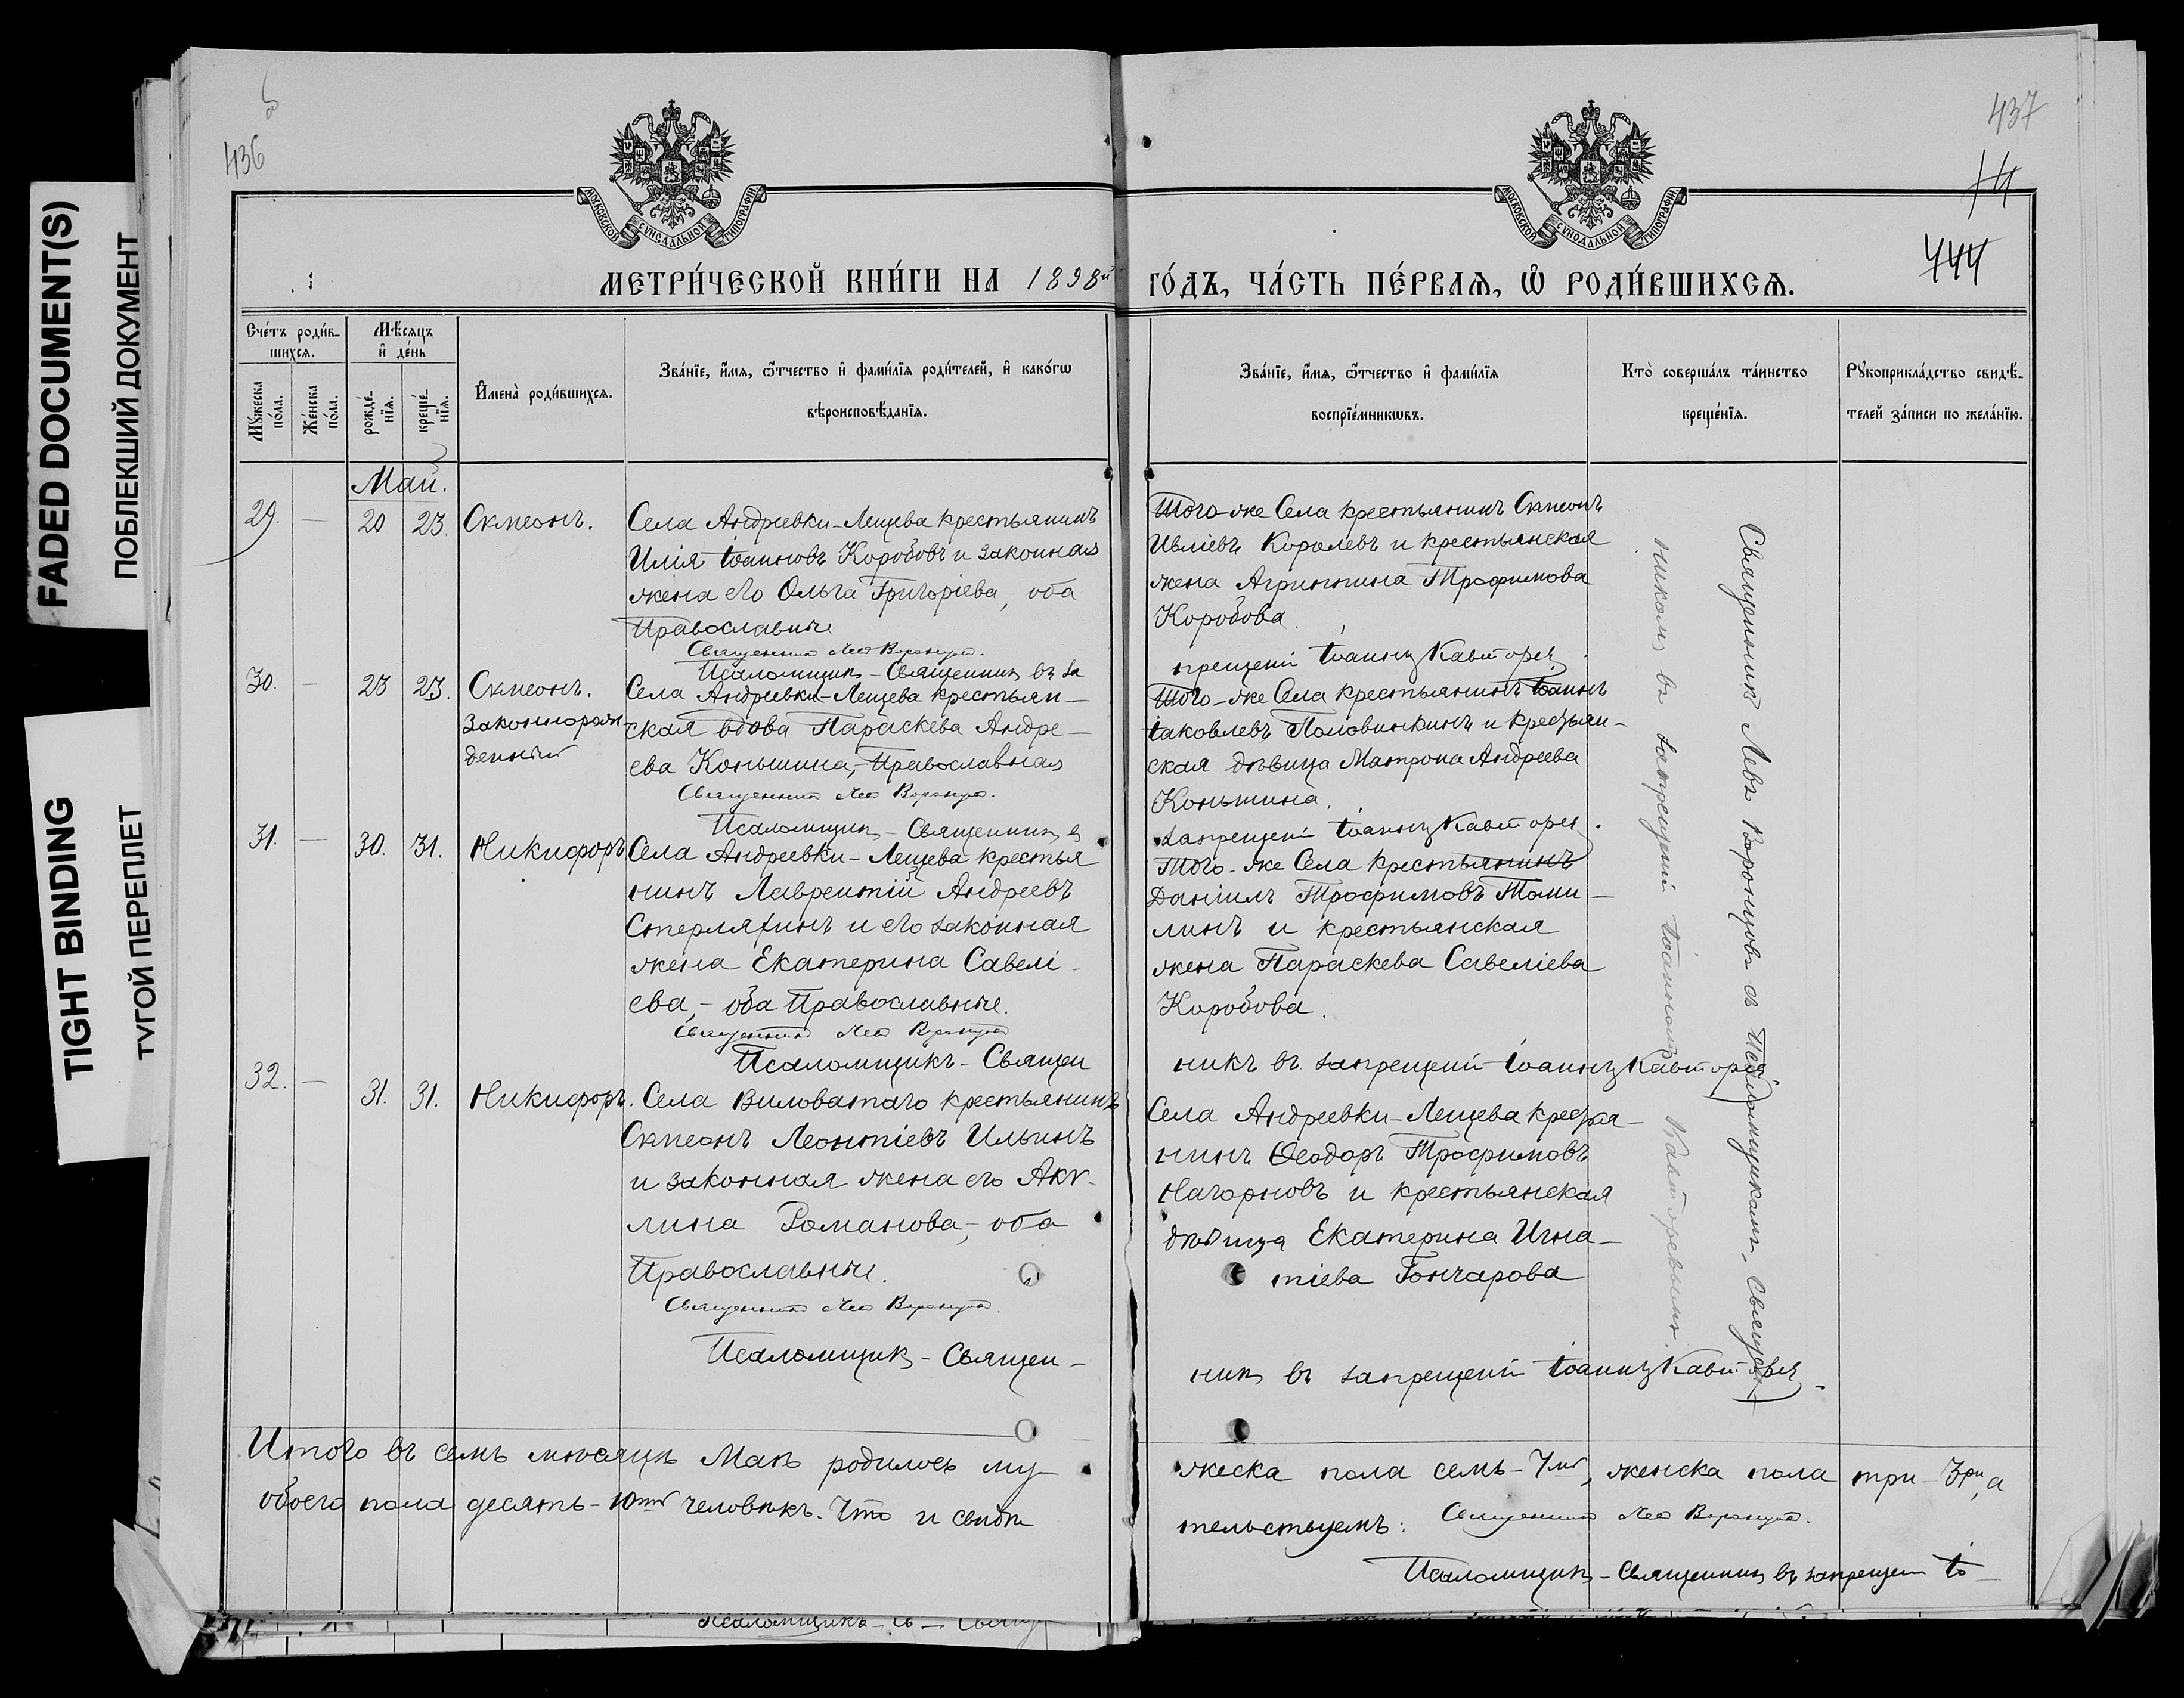 FADED DOCUMENT(S)
ПОБЛЕКШИЙ ДОКУМЕНТ
TIGHT BINDING
ТУГОЙ ПЕРЕПЛЕТ
436
437
444
МОСКОВСКОЙ СѴНОДАЛЬНОЙ ТИПОГРАФІИ
МОСКОВСКОЙ СѴНОДАЛЬНОЙ ТИПОГРАФІИ
МЕТРИ́ЧЕСКОЙ КНИ́ГИ НА 1898й
ГО́ДЪ, ЧА́СТЬ ПЕ́РВАѦ, Ѡ҆ РОДИ́ВШИХСѦ.
Сче́тъ роди́в-
шихсѧ.
Мꙋ́жеска по́ла.
Же́нска по́ла.
Мѣ́сѧцъ
и҆ де́нь
рожде́-
нїѧ.
креще́-
нїѧ.
И҆мена̀ роди́вшихсѧ.
Зва́нїе, и҆́мѧ, ѻ҆́тчество и҆ фами́лїѧ роди́телей, и҆ како́гѡ
вѣроисповѣ́данїѧ.
Зва́нїе, и҆́мѧ, ѻ҆́тчество и҆ фами́лїѧ
воспрїе́мникѡвъ.
Кто̀ соверша́лъ та́инство
креще́нїѧ.
Рꙋкоприкла́дство свидѣ́-
телей за́писи по жела́нїю.
Май.
29. — 20 23. Симеонъ.
Села Андреевки-Лещева крестьянинъ
Илія Іоанновъ Коробовъ и законная
жена его Ольга Григоріева, оба
Православные
Священникъ Левъ Воронцовъ.
Псаломщикъ - Священникъ въ за
Того-же Села крестьянинъ Симеонъ
Ивліевъ Королевъ и крестьянская
жена Агриппина Трофимова
Коробова.
прещеніи Іоаннъ Кавторев.
30. — 23 23. Симеонъ.
Законнорож-
денный
Села Андреевки-Лещева крестьян-
ская вдова Параскева Андре-
ева Коньшина, Православная
Священникъ Левъ Воронцовъ.
Псаломщикъ - Священникъ в
Того-же Села крестьянинъ Іоаннъ
Іаковлевъ Половинкинъ и крестьян-
ская дѣвица Матрона Андреева
Коньшина.
запрещеніи Іоаннъ Кавторев.
31. — 30. 31. Никифоръ
Села Андреевки-Лещева крестья
нинъ Лаврентій Андреевъ
Стерляхинъ и его законная
жена Екатерина Савелі-
ева, - оба Православные.
Священникъ Левъ Воронцовъ
Псаломщикъ - Священ
Того-же Села крестьянинъ
Даніилъ Трофимовъ Томи-
линъ и крестьянская
жена Параскева Савеліева
Коробова.
никъ въ запрещеніи Іоаннъ Кавторев
32. — 31. 31. Никифоръ.
Села Виловатаго крестьянинъ
Симеонъ Леонтіевъ Ильинъ
и законная жена его Аку-
лина Романова, - оба
Православные.
Священникъ Левъ Воронцовъ.
Псаломщикъ - Священ-
Села Андреевки-Лещева крестья-
нинъ Ѳеодоръ Трофимовъ
Нагорновъ и крестьянская
дѣвица Екатерина Игна-
тіева Гончарова
никъ въ запрещеніи Іоаннъ Кавторев.
Священникъ Левъ Воронцовъ съ Псаломщикомъ - Священ-
никомъ въ запрещеніи Іоанномъ Кавторевымъ.
Итого въ семъ мѣсяцѣ Маѣ родилось му
жеска пола семь - 7мь, женска пола три - 3ри, а
обоего пола десять - 10ть человѣкъ. Что и свидѣ
тельствуемъ: Священникъ Левъ Воронцовъ.
Псаломщикъ - Священникъ въ запрещеніи Іо-